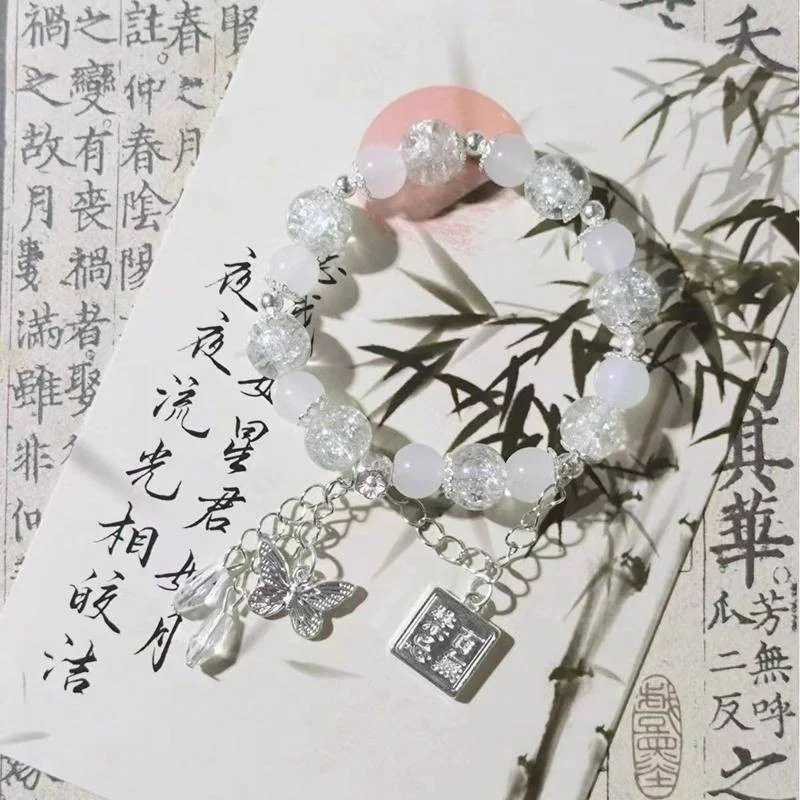 夭
其華
芳無呼
瓜二反
之
賢
春之月
註。仲春陰陽
之變。有喪禍者。娶
禍之故。月數滿雖非仲
星君如月
夜夜流光相皎洁
百無
禁忌